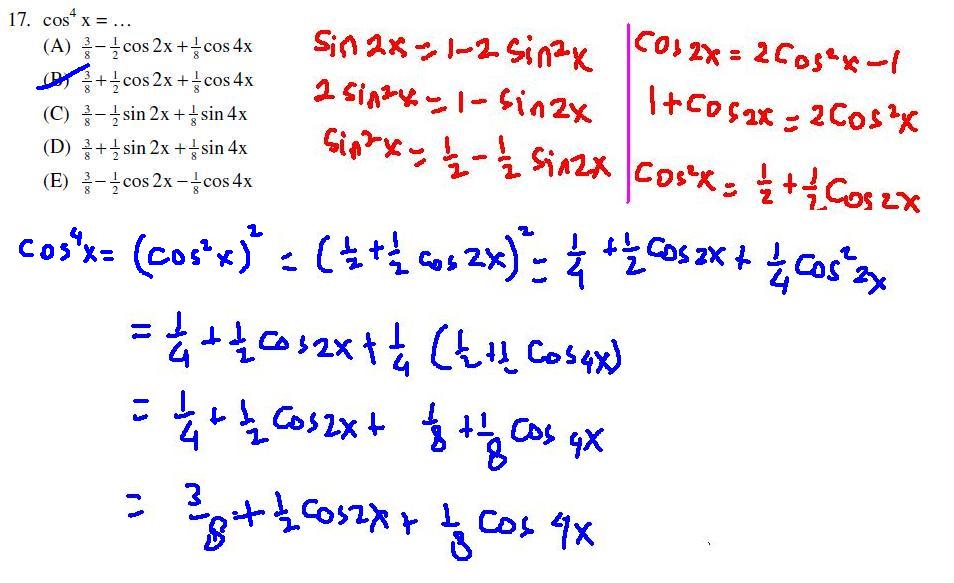 17. cos⁴ x = ...
(A) 3/8 − 1/2 cos 2x + 1/8 cos 4x
(B) 3/8 + 1/2 cos 2x + 1/8 cos 4x
(C) 3/8 − 1/2 sin 2x + 1/8 sin 4x
(D) 3/8 + 1/2 sin 2x + 1/8 sin 4x
(E) 3/8 − 1/2 cos 2x − 1/8 cos 4x
Sin 2x = 1 − 2 Sin²x
2 Sin²x = 1 − Sin 2x
Sin²x = 1/2 − 1/2 Sin 2x
Cos 2x = 2 Cos²x − 1
1 + Cos 2x = 2 Cos²x
Cos²x = 1/2 + 1/2 Cos 2x
cos⁴x = (cos²x)² = (1/2 + 1/2 cos 2x)² = 1/4 + 1/2 Cos 2x + 1/4 Cos² 2x
= 1/4 + 1/2 Cos 2x + 1/4 (1/2 + 1/2 Cos 4x)
= 1/4 + 1/2 Cos 2x + 1/8 + 1/8 Cos 4x
= 3/8 + 1/2 Cos 2x + 1/8 Cos 4x